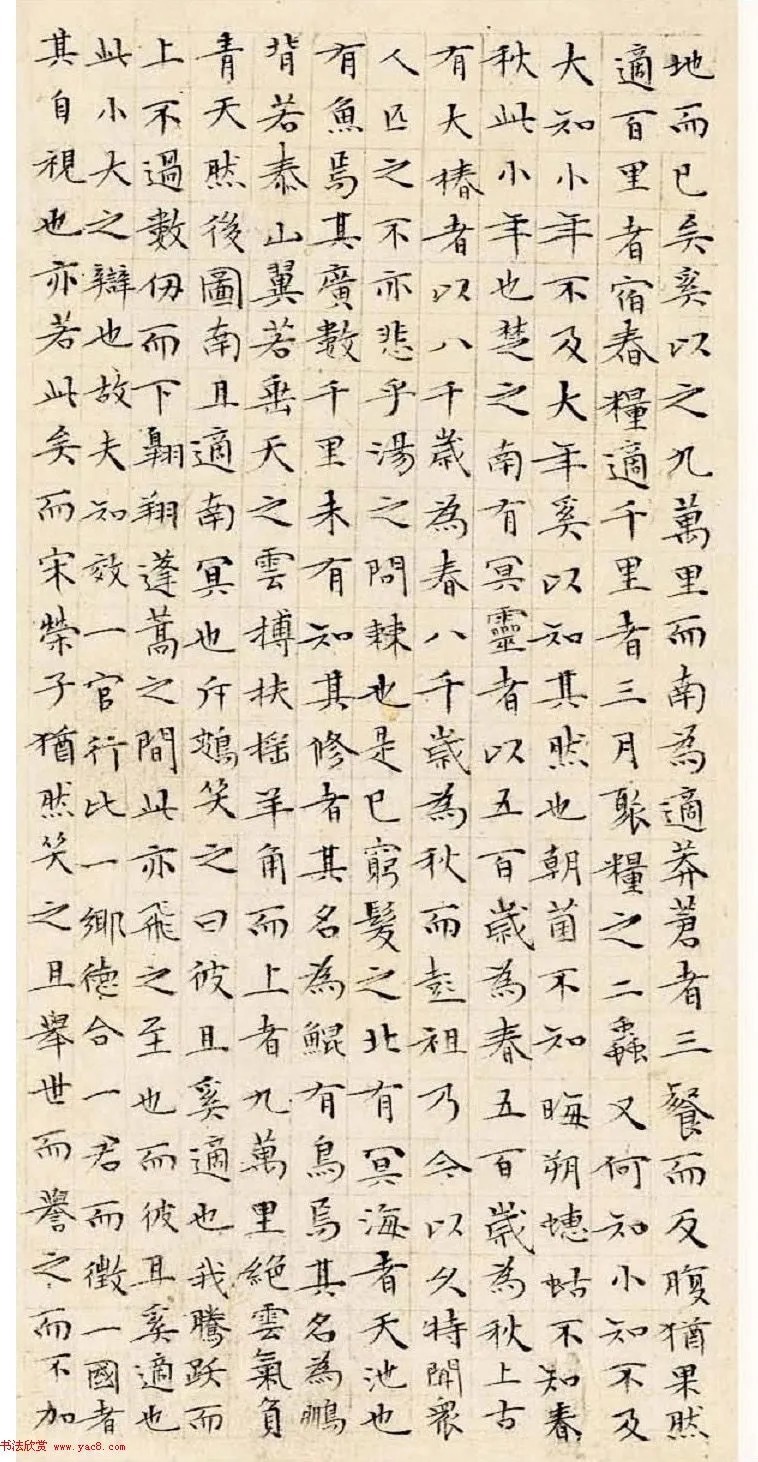 地而已矣奚以之九萬里而南為適莽蒼者三餐而反腹猶果然
適百里者宿舂糧適千里者三月聚糧之二蟲又何知小知不及
大知小年不及大年奚以知其然也朝菌不知晦朔蟪蛄不知春
秋此小年也楚之南有冥靈者以五百歲為春五百歲為秋上古
有大椿者以八千歲為春八千歲為秋而彭祖乃今以久特聞衆
人匹之不亦悲乎湯之問棘也是已窮髮之北有冥海者天池也
有魚焉其廣數千里未有知其修者其名為鯤有鳥焉其名為鵬
背若泰山翼若垂天之雲摶扶揺羊角而上者九萬里絕雲氣負
青天然後圖南且適南冥也斥鴳笑之曰彼且奚適也我騰跃而
上不過數仞而下翱翔蓬蒿之間此亦飛之至也而彼且奚適也
此小大之辯也故夫知效一官行比一鄉德合一君而徵一國者
其自視也亦若此矣而宋榮子猶然笑之且舉世而譽之而不加
书法欣赏 www.yac8.com